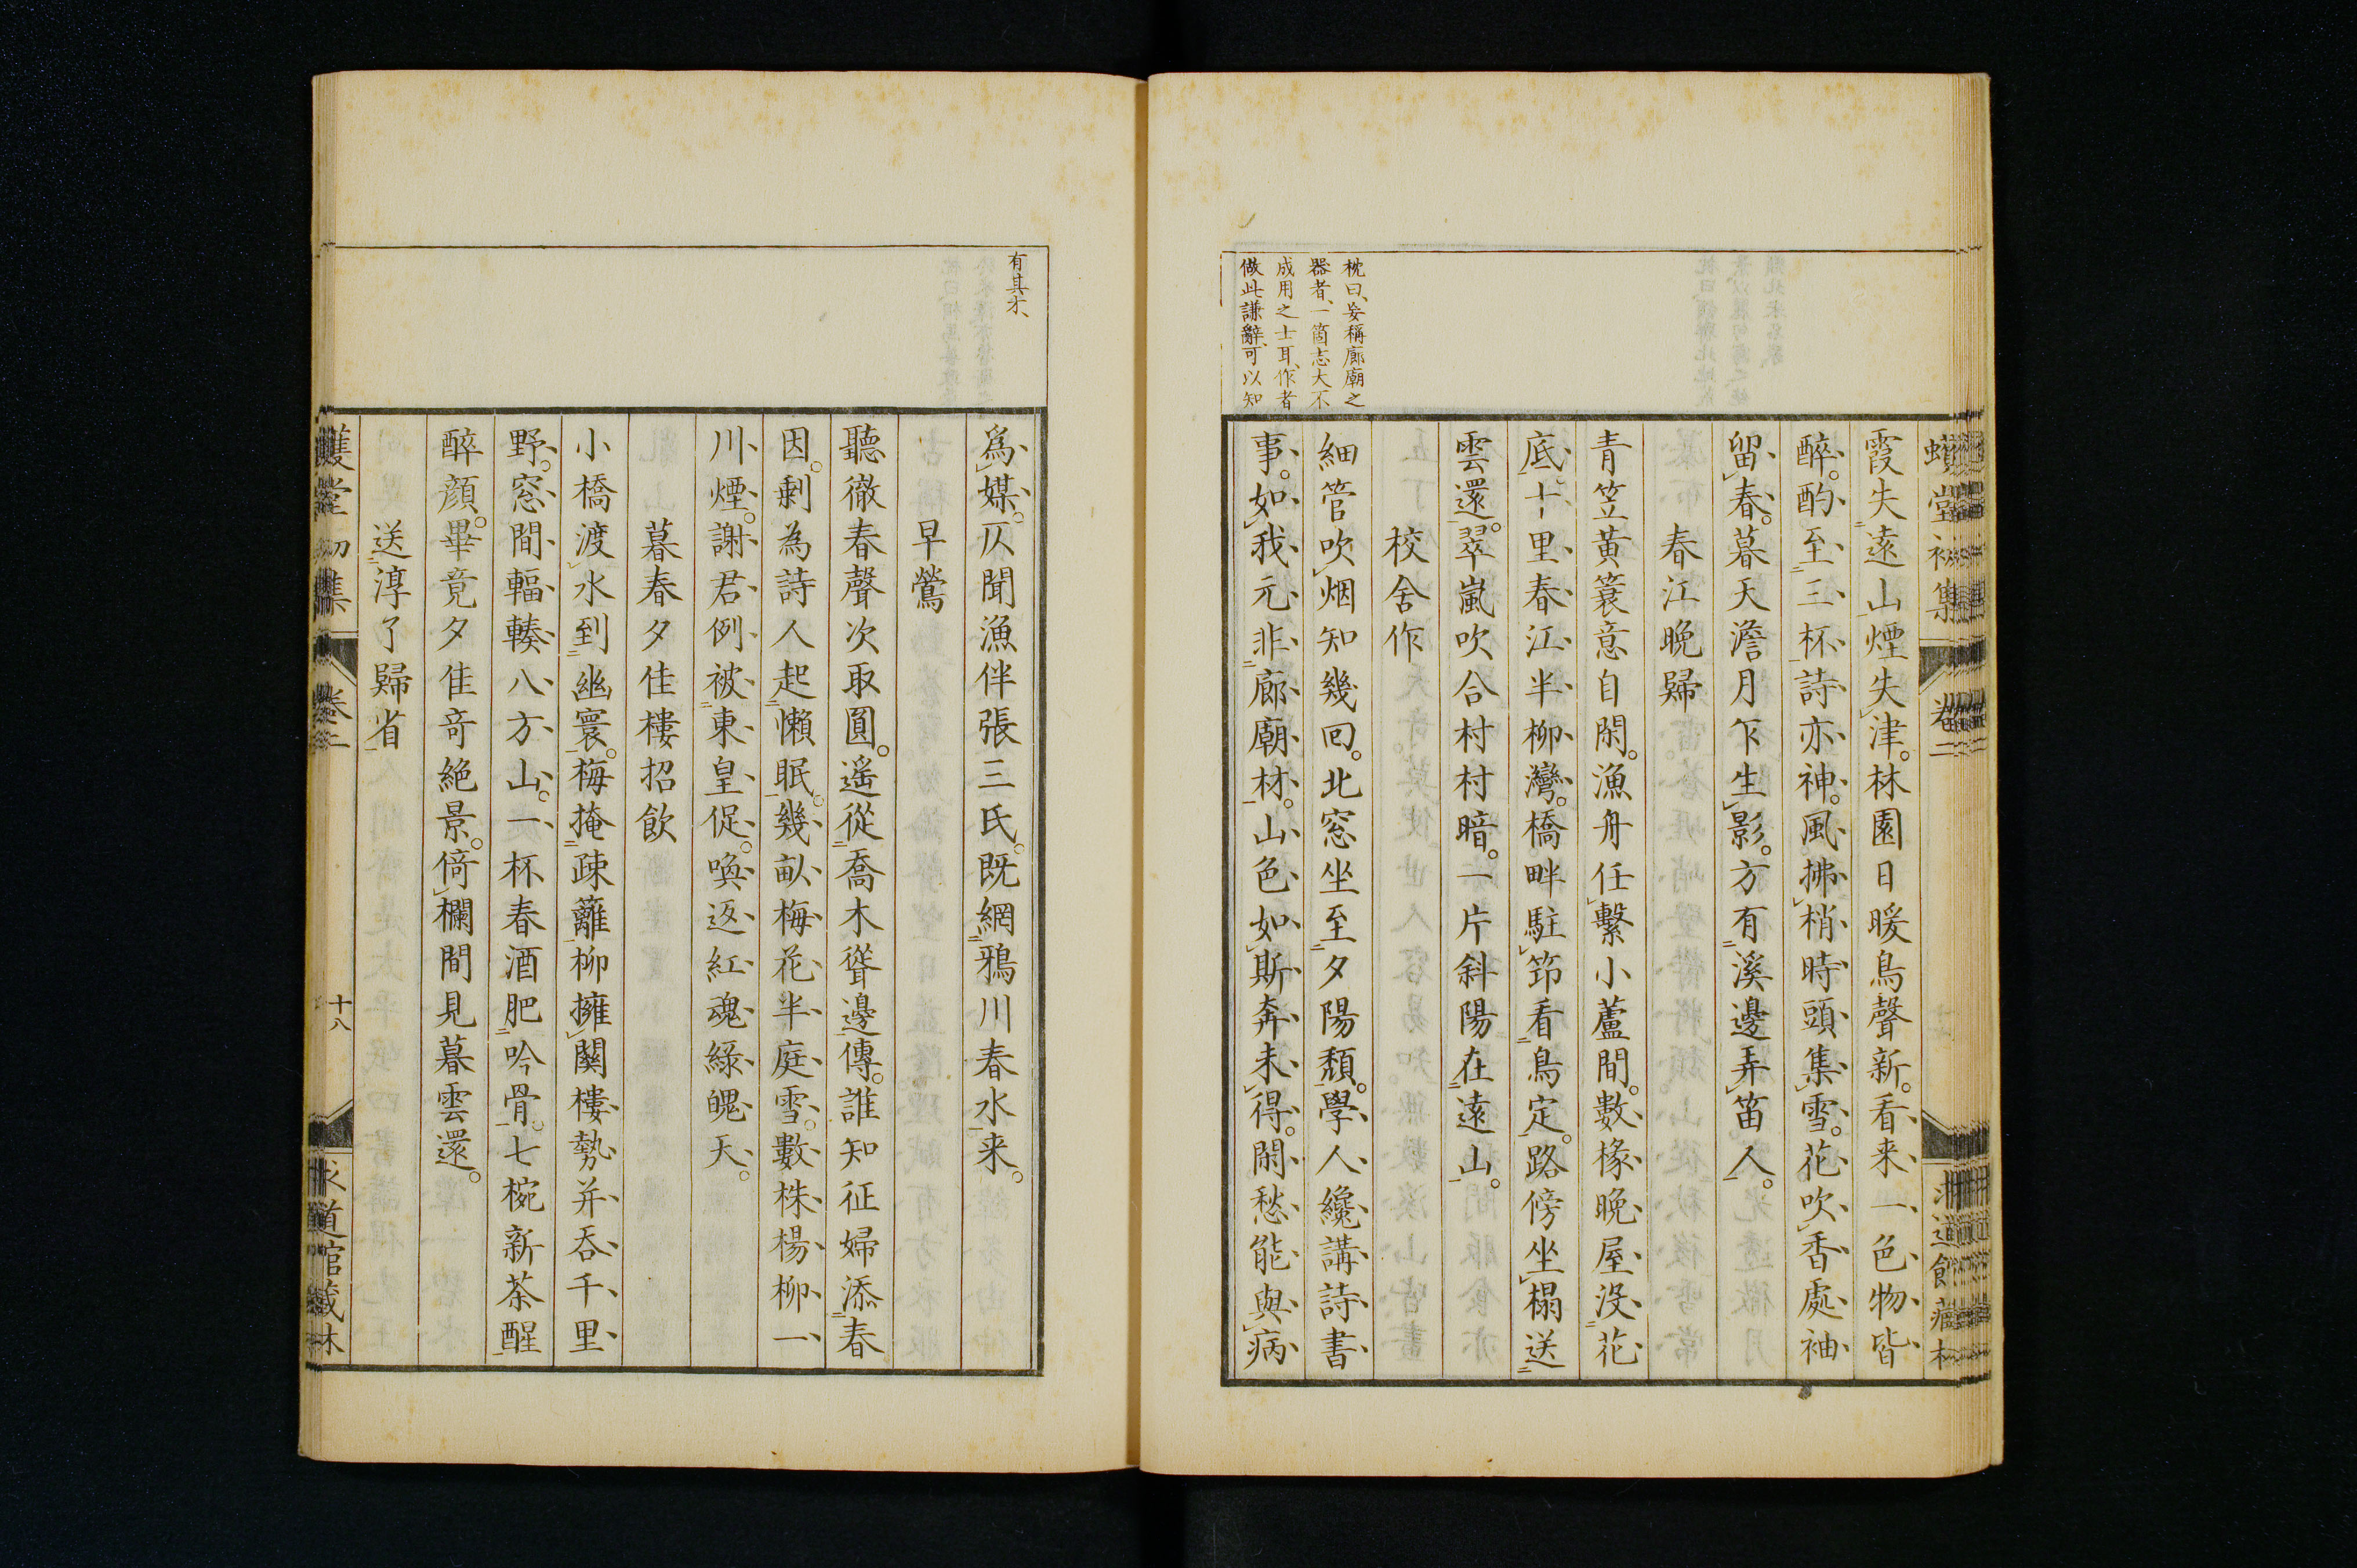 枕曰、妄稱廊廟之
器者、一箇志大不
成用之士耳、作者
做此謙辭、可以知
霞失遠山煙失津。林園日暖鳥聲新。看来一色物皆
醉。酌至三杯詩亦神。風拂梢時頭集雪。花吹香處袖
留春。暮天澹月乍生影。方有溪邊弄笛人。
春江晩歸
青笠黃簑意自閑。漁舟任繫小蘆間。數椽晩屋没花
底。十里春江半柳灣。橋畔駐筇看鳥定。路傍坐榻送
雲還。翠嵐吹合村村暗。一片斜陽在遠山。
校舍作
細管吹烟知幾回。北窓坐至夕陽頽。學人纔講詩書
事。如我元非廊廟材。山色如斯奔未得。閑愁能與病
有其才、
爲媒。仄聞漁伴張三氏。既網鴉川春水来。
早鶯
聽徹春聲次取圓。遥從喬木聳邊傳。誰知征婦添春
因。剩為詩人起懶眠。幾畝梅花半庭雪。數株楊柳一
川煙。謝君例被東皇促。喚返紅魂綠魄天。
暮春夕佳樓招飲
小橋渡水到幽寰。梅掩疎籬柳擁關。樓勢并呑千里
野。窓間輻輳八方山。一杯春酒肥吟骨。七椀新茶醒
醉顔。畢竟夕佳竒絶景。倚欄間見暮雲還。
送淳了歸省
卷二
十八
道館藏